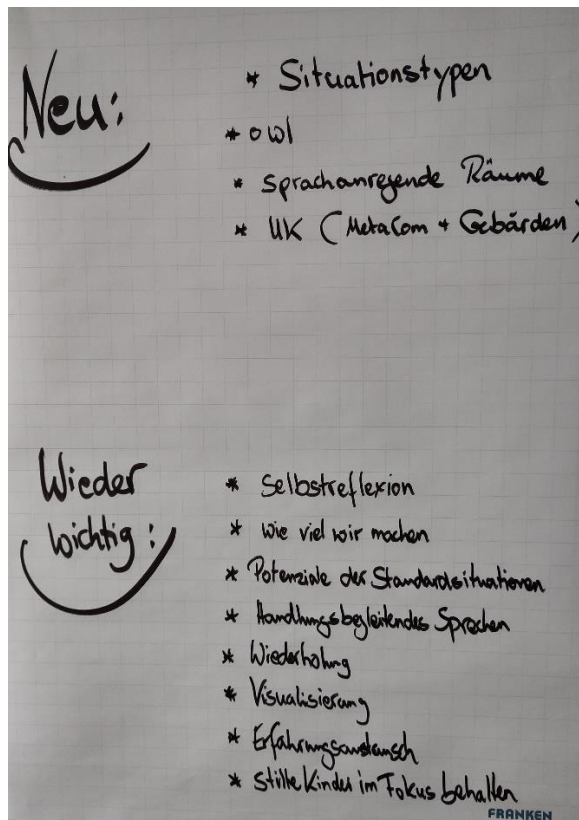 Neu:
* Situationstypen
* owl
* sprachanregende Räume
* UK (MetaCom + Gebärden)
Wieder
wichtig:
* Selbstreflexion
* wie viel wir machen
* Potenziale der Standardsituationen
* Handlungsbegleitendes Sprechen
* Wiederholung
* Visualisierung
* Erfahrungsaustausch
* stille Kinder im Fokus behalten
FRANKEN